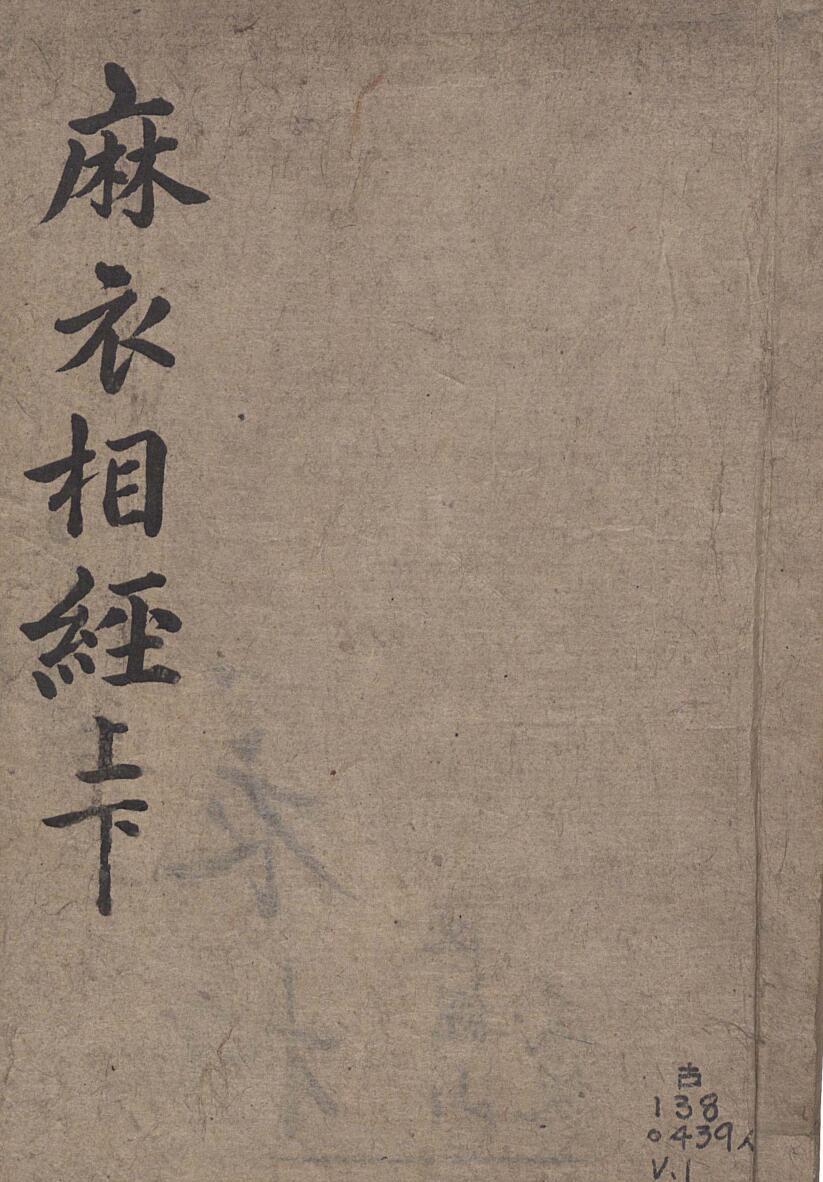 麻衣相經上下
古
138
0439人
V.1